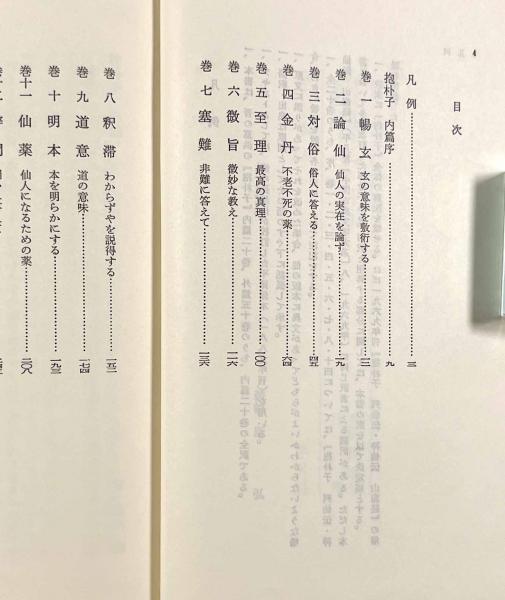 4
目次
凡例……三
抱朴子 内篇序……九
巻一 暢玄 玄の意味を敷術する……一三
巻二 論仙 仙人の実在を論ず……一九
巻三 対俗 俗人に答える……四五
巻四 金丹 不老不死の薬……六四
巻五 至理 最高の真理……一〇〇
巻六 微旨 微妙な教え……一一六
巻七 塞難 非難に答えて……一三六
巻八 釈滞 わからずやを説得する……一五一
巻九 道意 道の意味……一七四
巻十 明本 本を明らかにする……一九三
巻十一 仙薬 仙人になるための薬……二〇八